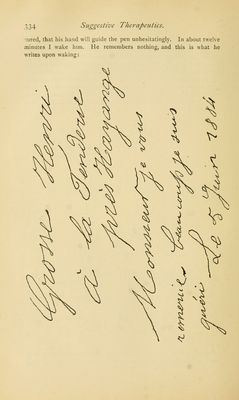 334 Suggestive Therapeutics.
cured, that his hand will guide the pen unhesitatingly. In about twelve
minutes I wake him. He remembers nothing, and this is what he
writes upon waking:
Grosse Henri
à la Fenderie
près Hayange
Monsieur je vous
remercie beaucoup je suis
guéri — Le 5 juin 1884